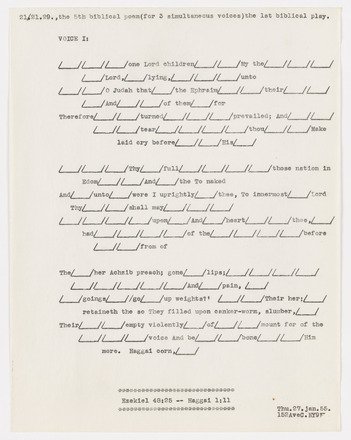 21/21.29.,the 5th biblical poem(for 3 simultaneous voices)the 1st biblical play.
VOICE I:
/____/____/____/one Lord children/____/____/My the/____/____/____/
/____/Lord,/____/lying,/____/____/____/____/unto
/____/____/O Judah that/____/the Ephraim/____/____/their/____/____/
/____/And/____/____/of them/____/for
Therefore/____/____/turned/____/____/____/prevailed; And/____/____/
/____/____/tear/____/____/____/____/thou/____/Make
laid cry before/____/____/His/____/
/____/____/____/Thy/____/full/____/____/____/____/those nation in
Edom/____/____/And/____/the To naked
And/____/unto/____/were I uprightly/____/thee, To innermost/____/Lord
Thy/____/shall may/____/____/____/____/
/____/____/____/____/upon/____/And/____/heart/____/thee,/____/
had/____/____/____/____/of the/____/____/____/____/before
/____/____/from of
The/____/her Achzib preach; gone/____/lips;/____/____/____/____/
/____/____/____/____/____/And/____/palm,/____/
/____/goings/____//go/____/up weights?' /____/____/Their her;/____/
retaineth the so They filled upon canker-worm, slumber,/____/
Their/____/____/empty violently/____/of/____/____/mount for of the
/____/____/____/____/voice And be/____/bone/____/____/Him
more. Haggai corn,/____/
Ezekiel 48:25 -- Haggai 1:11
Thu.27.jan.55.
152AveC.NY9F